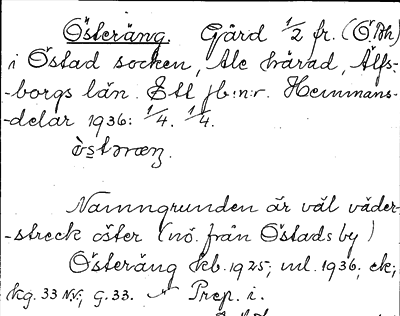 Österäng. Gård 1/2 fr. (Ö.Bh)
i Östad socken, Ale härad, Älfs-
-borgs län. Ett jb:n:r. Hemmans-
-delar 1936: 1/4. 1/4.
Namngrunden är väl väder-
-streck öster (nö. från Östads by)
Österäng kb. 1925; ml. 1936; ek;
kg. 33 NV; g. 33. Prep. i.